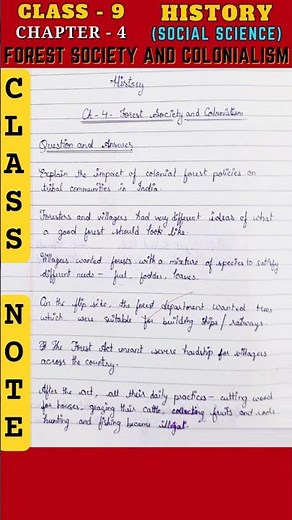 CLASS - 9
HISTORY
CHAPTER - 4
(SOCIAL SCIENCE)
FOREST SOCIETY AND COLONIALISM
CLASS NOTE
History
Ch - 4 - Forest Society and Colonialism
Question and Answer
Explain the impact of colonial forest policies on
tribal communities in India.
Foresters and villagers had very different ideas of what
a good forest should look like.
Villagers wanted forests with a mixture of species to satisfy
different needs - fuel, fodder, leaves.
On the flip side, the forest department wanted trees
which were suitable for building ships / railways
The Forest Act meant severe hardship for villagers
across the country.
After the act, all their daily practices - cutting wood
for houses, grazing their cattle, collecting fruits and roots
hunting and fishing became illegal.